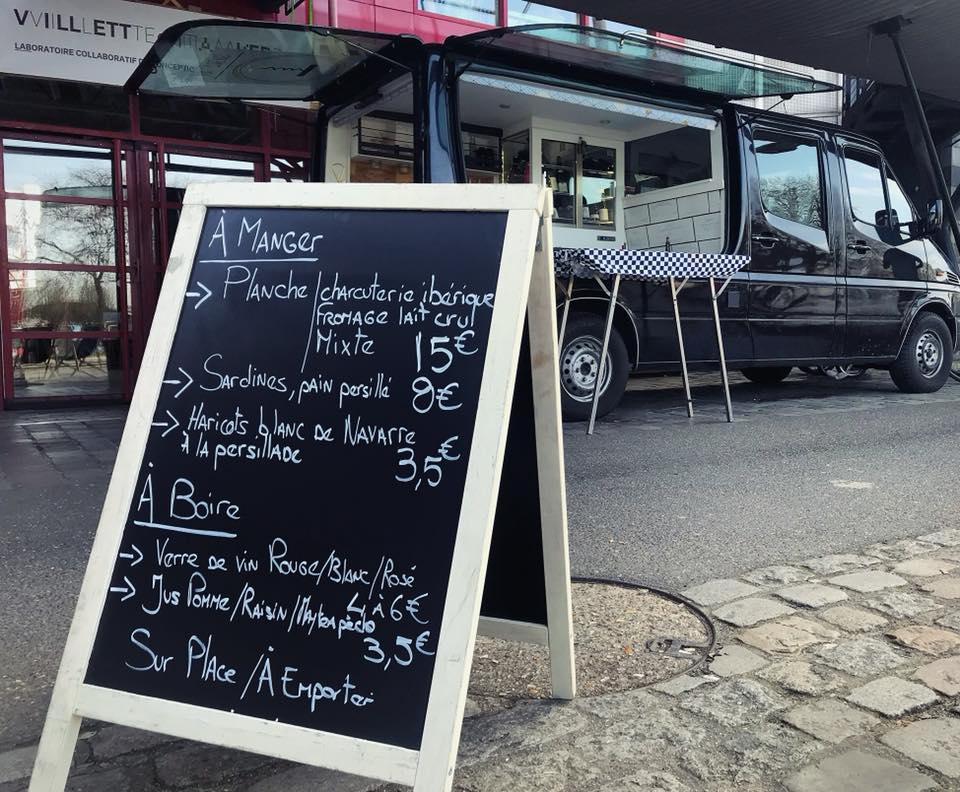 LABORATOIRE COLLABORATIF
À MANGER
→ PLANCHE / charcuterie ibérique
FROMAGE lait cru
Mixte 15€
→ Sardines, pain persillé 8€
→ HARICOTS blanc de NAVARRE
À la persillade 3,5€
À Boire
→ Verre de vin Rouge/Blanc/Rosé
4 à 6€
→ Jus Pomme/Raisin/
3,5€
Sur Place / À Emporter